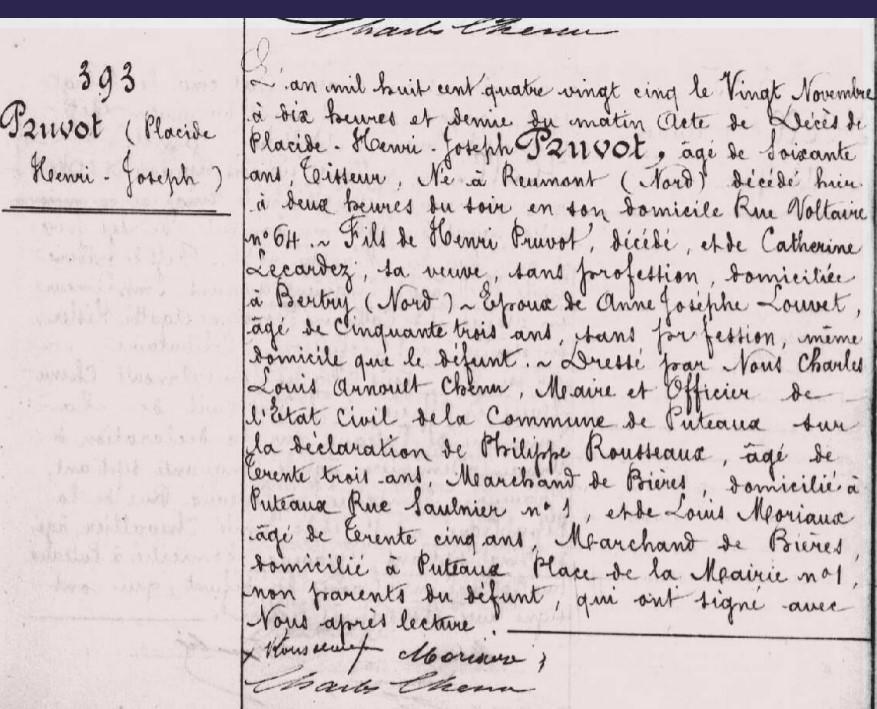 Charles Chenu
393
Pruvot (Placide
Henri - Joseph)
L'an mil huit cent quatre vingt cinq le Vingt Novembre
à dix heures et demie du matin Acte de Décès de
Placide - Henri - Joseph Pruvot, âgé de Soixante
ans, Tisseur, Né à Reumont (Nord) décédé hier
à deux heures du soir en son domicile Rue Voltaire
n° 64. ~ Fils de Henri Pruvot, décédé, et de Catherine
Lecardez, sa veuve, sans profession, domiciliée
à Bertry (Nord) ~ Epoux de Anne Josèphe Louvet,
âgé de Cinquante trois ans, sans profession, même
domicile que le défunt. ~ Dressé par Nous Charles
Louis Arnoult Chenu, Maire et Officier de
l'Etat Civil de la Commune de Puteaux sur
la déclaration de Philippe Rousseaux, âgé de
trente trois ans, Marchand de Bières, domicilié à
Puteaux Rue Saulnier n° 1, et de Louis Moriaux
âgé de trente cinq ans, Marchand de Bières,
domicilié à Puteaux Place de la Mairie n° 1,
non parents du défunt, qui ont signé avec
Nous après lecture.
Rousseaux Moriaux
Charles Chenu